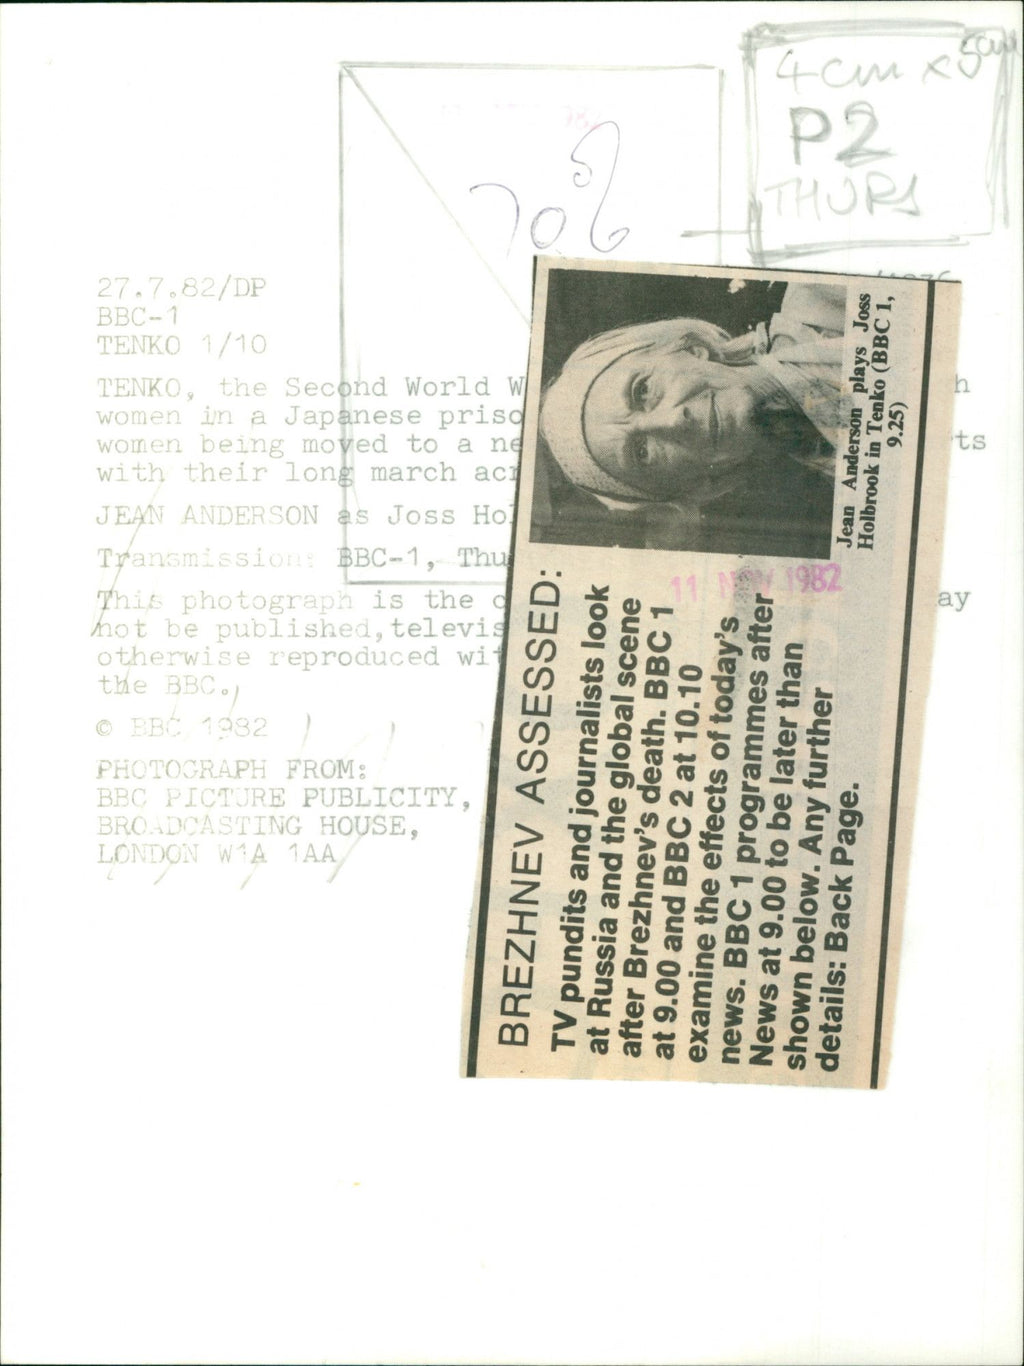 4cm x 5cm
P2
THURS
706
27.7.82/DP
BBC-1
TENKO 1/10
TENKO, the Second World W
women in a Japanese priso
women being moved to a ne
with their long march acr
JEAN ANDERSON as Joss Hol
Transmission: BBC-1, Thu
This photograph is the c
not be published,televis
otherwise reproduced wit
the BBC.
© BBC 1982
PHOTOGRAPH FROM:
BBC PICTURE PUBLICITY,
BROADCASTING HOUSE,
LONDON W1A 1AA
h
ts
ay
Jean Anderson plays Joss
Holbrook in Tenko (BBC 1,
9.25)
11 NOV 1982
BREZHNEV ASSESSED:
TV pundits and journalists look
at Russia and the global scene
after Brezhnev's death. BBC 1
at 9.00 and BBC 2 at 10.10
examine the effects of today's
news. BBC 1 programmes after
News at 9.00 to be later than
shown below. Any further
details: Back Page.